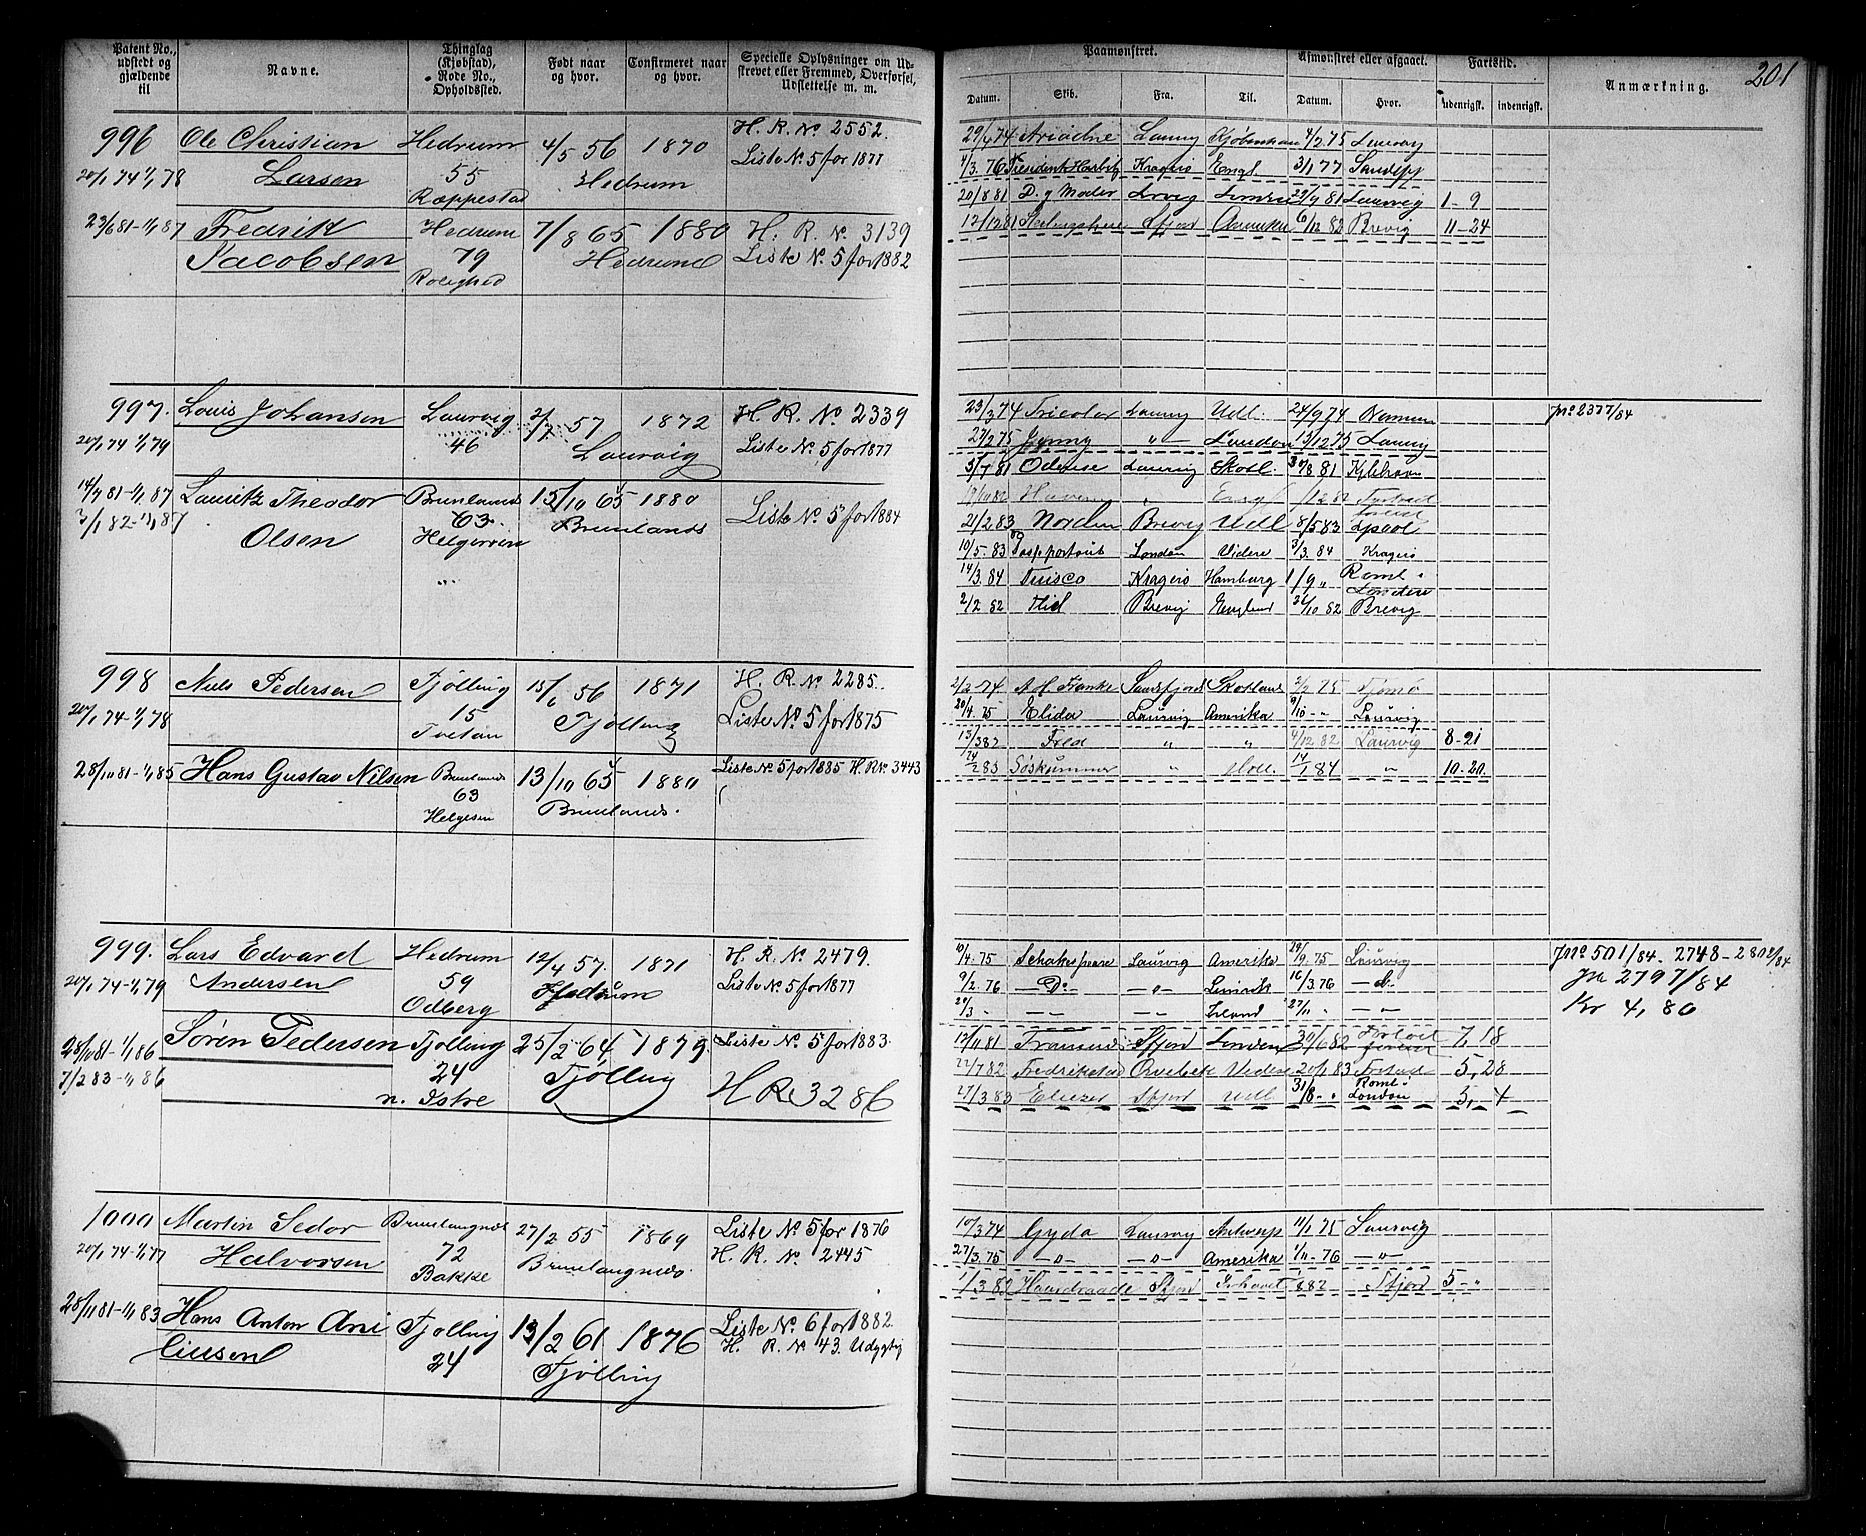 Patent No., udstedt og gjældende til
Navne.
Thinglag (Kjøbstad), Rode No., Opholdssted.
Født naar og hvor.
Confirmeret naar og hvor.
Specielle Oplysninger om Udskrevet eller Fremmed, Overførsel, Udslettelse m. m.
Paamønstret.
Afmønstret eller afgaaet.
Fartstid.
Anmærkning.
201
Datum. Skib. Fra. Til. Datum. Hvor. udenrigsk. indenrigsk.
996 Ole Christian Hedrum 4/5 56 1870 H. R. No 2552.
20/1 74 1/1 78 Larsen 55 Hedrum Liste No 5 for 1877
Ræppestad
23/6 81-1/1 87 Fredrik Hedrum 7/8 65 1880 H. R. No 3139
Jacobsen 79 Hedrum Liste No. 5 for 1882
Rolighed
29/4 74 Ariadne Laurv Kjøbenhavn 4/2 75 Laurvig
4/3. 76 Præsident Harbitz Kragerø Engl. 3/1 77 Sandefj
20/8 81 D. g Moder Larvig London 22/9 81 Laurvig 1-9
12/12 81 Sfjord Amerika 6/12 82 Brevig 11-24
997. Louis Johansen Laurvig 2/7 57 1872 H. R. No 2339
20/1 74 1/1 79 46 Laurvig Liste No 5 for 1877
14/7 81-1/1 87 Lauritz Theodor Brunlanæs 15/10 65 1880
3/1 82-1/1 87 Olsen 63. Brunlanæs Liste No 5 for 1884
Helgeroen
23/3 74 Tricolor Laurvig Udl. 24/9 74 Jno 2377/84
27/2 75 Jenny " London 13/12 75 Laurvig
3/7 81 Odense Laurvig Skotl. 30/8 81 Kjbhavn
Engl
21/2 83 Norden Brevig Udl 8/5 83 Lpool
10/5. 83 London Videre 3/3. 84 Kragerø
14/3. 84 Tuisco Kragerø Hamburg 1/9 " Roml. London
2/2 82 Brevig England 31/10 82 Brevig
998 Niels Pedersen Tjølling 15/6 56 1871 H. R. No 2285.
20/1 74-1/1 78 15 Tjølling Liste No 5 for 1875
Tvetan
28/10 81-1/1 85 Hans Gustav Nilsen Brunlanæs 13/10 65 1880 Liste No 5 for 1885 H. R No 3443
63 Brunlanæs.
Helgeroen
2/3 74 A H. Franke Sandefjord Skotland 2/2 75 Tjømø
20/4. 75 Elida Laurvig Amerika 9/10 -" Laurvig
13/3 82 Fred " " 4/12 82 Laurvig 8-21
24/2 83 Søskummer " Holl. 14/1 84 " 10-20.
999. Lars Edvard Hedrum 12/4 57. 1871 H. R. No 2479.
20/1 74-1/1 79 Andersen 59 Hedrum Liste No 5 for 1877
Odberg
25/10 81-1/1 86 Søren Pedersen Tjølling 25/2 64 1879. Liste No 5 for 1883.
7/2 83-1/1 86 24 Tjølling H R 3286
n. Istre
10/4. 75 Schakespeare Laurvig Amerika 29/9 75 Laurvig Jno 501/84. 2748-2802/84
9/2. 76 -Do- -"- Limrik 16/3. 76 -"- Jn 2797/84
29/3 " -"- -"- Irland 27/11 " -"- Kr 4,86
12/11 81 Sfjord London 30/6 82 7, 18
22/7 82 Fredrikstad Ørebek Videre 20/1 83 5, 28
27/3. 83 Eliezer Sfjord Udl 31/8 - " Roml. London 5, - 4
1000 Martin Sedor Brunlangnæs 27/2 55 1869 Liste No 5 for 1876
20/1 74-1/1 77 Halvorsen 72 Brunlangnæs. H. R. No 2445
Bakke
28/11 81-1/1 83 Hans Anton Ani Tjølling 13/2 61 1876 Liste No. 6 for 1882
Ciusen 24 Tjølling H. R. No 43. Udygtig
10/3 74 Gyda Laurvig Antwerp 11/1 75 Laurvig
27/3. 75 -"- -"- Amerika 1/11 - 76 -"-
1/3 82 Haardraade Sfjord Ishavet 82 Sfjord 5-"